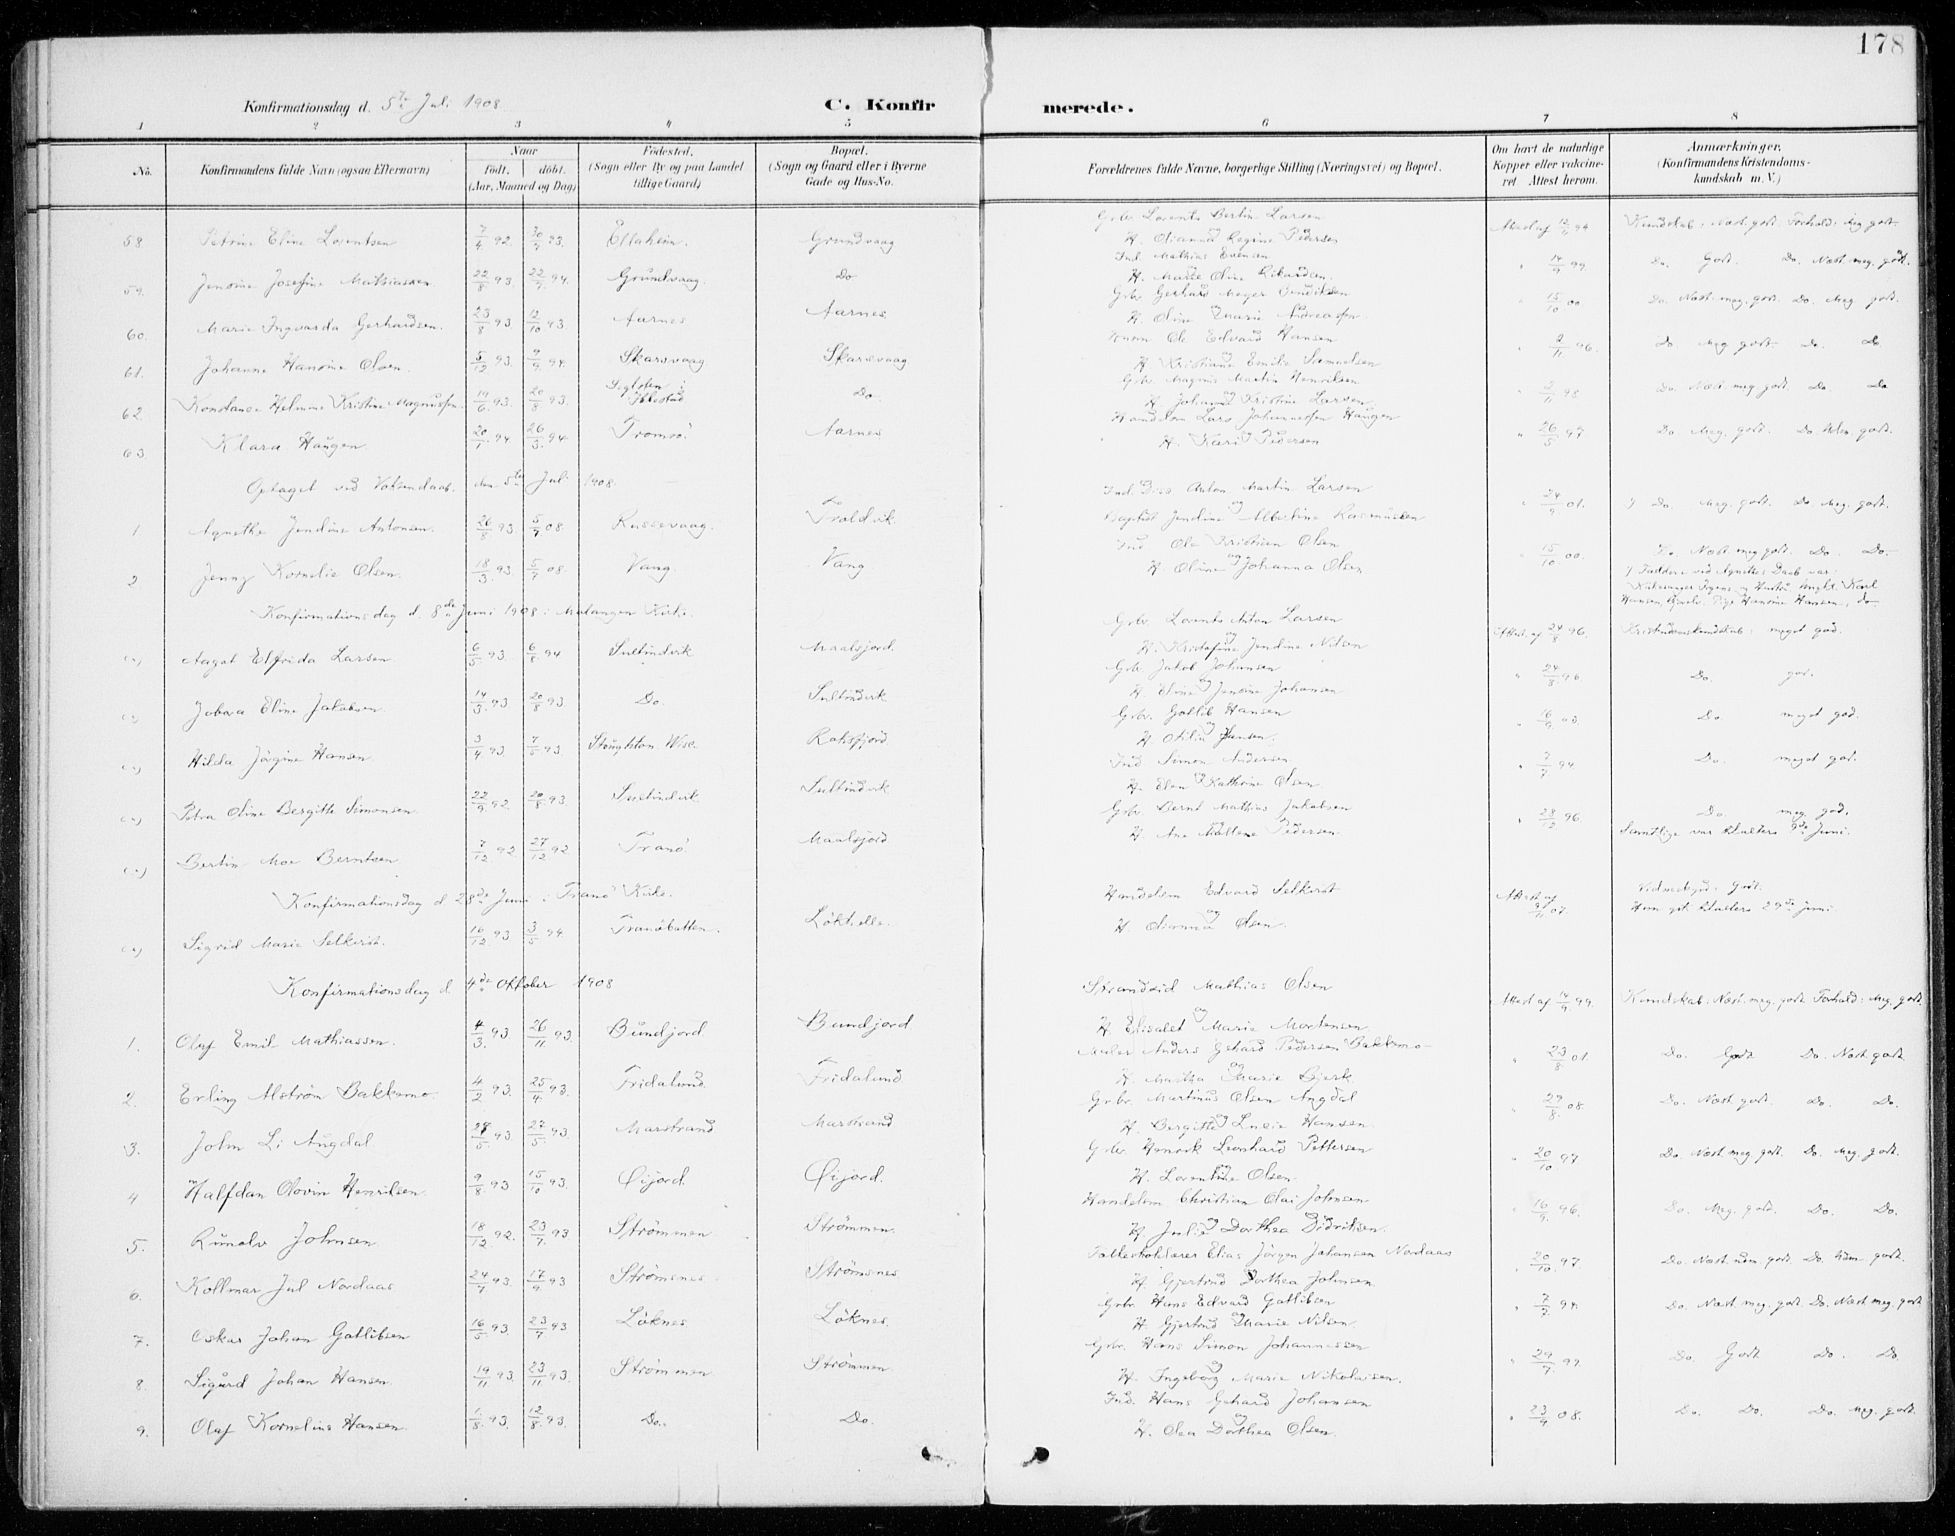 178
Konfirmationsdag d. 5te Juli 1908
C. Konfirmerede.
1 2 3 4 5 6 7 8
No. Konfirmandens fulde Navn (ogsaa Efternavn) Naar født. døbt. (Aar, Maaned og Dag) Fødested. (Sogn eller By og paa Landet tillige Gaard) Bopæl. (Sogn og Gaard eller i Byerne Gade og Hus-No. Forældrenes fulde Navne, borgerlige Stilling (Næringsvei) og Bopæl. Om havt de naturlige Kopper eller vakcineret Attest herom. Anmærkninger. (Konfirmandens Kristendomskundskab m. V.)
58 Petrine Eline Lorentsen 7/4 92. Grundvaag Gbr. Lorents Bertin Larsen
H. Regine Pedersen Attest af 12/11 94 Kundskab: Næst. godt. Forhold: Meg godt
59. Jensine Josefine Mathiassen 22/8 93. 22/7 94. Grundvaag. Do Ind. Mathias Evensen
H. Marie Oline Rikardsen. " 14/9 99. Do. Godt. Do. Næst. meg. godt.
60. Marie Ingvarda Gerhardsen. 23/8 93 12/10 93 Aarnes Aarnes Gbr. Gerhard Meyer Bendiksen
H. Oline Marie Andreassen " 15/10 00 Do. Næst meg. godt. Do. Meg godt.
61. Johanne Hansine Olsen. 5/12 93. 9/9 94 Skarsvaag Skarsvaag Ole Edvard Hansen
H. Kristiane Emilie Samuelsen " 2/11 96. Do Meg godt Do. Do
62. Konstanse Helmine Kristine Magnussen. 19/6 93. 20/8 93. Ibbestad Do. Gbr. Magnus Martin Henriksen
H. Johanna Kristine Larsen " 2/11 98 Do. Næst meg godt Do. Do
63 Klara Haugen 20/1 94 26/3 94 Tromsö. Aarnes Handelsm Lars Johannessen Haugen
H. Kari Pedersen " 26/5 97 Do Meg. godt. Do. Uden godt.
Optaget ved Voksendaab. den 5te Juli 1908
1 Agnethe Jendine Antonsen. 26/8 93. 5/7 08. Russevaag. Troldvik. Ind. Diss. Anton Martin Larsen
og Baptist Jendine Albertine Rasmussen " 24/9 01. 1) Do. Meg. godt. Do Meg. godt.
2 Jenny Kornelie Olsen. 18/3 93. 5/7 08 Vang. Vang Ind Ole Kristian Olsen
og H. Oline Johanna Olsen " 15/10 00. Do. Næst meg godt. Do. Do.
1) Faddere ved Agnethes Daab var:
Hansen, Pige Hansine Hansen, do
Konfirmationsdag d. 8de Juni 1908 i Malangen Kirke.
Aagot Elfrida Larsen 6/5 93. 6/8 94 Sultindvik Maalsjord Gbr. Lorents Anton Larsen
og H. Kristofine Jendine Nilsen Attest af 24/8 96. Kristendomskundskab: meget god.
Eline Jakobsen 14/3 93 20/8 93. Do. Sultindvik Gbr. Jakob Johansen
og H. Eline Jensine Johansen " 24/8 96. Do. god.
Hilda Jörgine Hansen 3/4 93 7/5 93. Stoughton. Wisc. Rossfjord Gbr. Gotlib Hansen
og H. Otilia Jensen. " 16/9 03 Do. meget god.
Petra Oline Bergitte Simonsen 22/9 92 20/8 93. Sultindvik Sultindvik Ind Simon Andersen
H. Elen Kathrine Olsen " 7/7 94 Do. meget god.
Bertin Moe Berntsen 7/12 92 27/12 92 Tranö Maalsjord Gbr. Bernt Mathias Jakobsen
H. Ane Maltene Pedersen " 28/12 96 Do. meg. god.
Samtlige var til Alters 9de Juni.
Konfirmationsdag d 28de Juni i Tranö Kirke.
Sigrid Marie Selkvist. 16/12 93 3/5 94 Tranöbotten. Lökhelle. Handelsm Edvard Selkvist
og H. Olsen. Attest af 07. godt.
Hun gik til Alters 29de Juni.
Konfirmationsdag d. 4de Oktober 1908
1. Olaf Emil Mathiassen. 4/3 93. 26/11 93. Bundjord Bundjord Strandsid Mathias Olsen
og H. Elisabet Marie Mortensen Attest af 14/9 99. Kundskab: Næst. meg. godt. Forhold: Meg. godt.
2. Erling Alström Bakkemo. 4/2 93. 25/4 93. Fridalund Fridalund Maler Anders Gerhard Pedersen Bakkemo
og H. Martha Marie Bjerk " 23/8 01. Do. Godt Do. Næst godt
3. John Li Augdal. 28/5 93. 27/5 93. Marstrand Marstrand Gbr. Martinus Olsen Augdal
og H. Bergitte Lucie Hansen " 29/8 08 Do. Næst godt. Do. Do.
4 Halfdan Olovin Henriksen. 9/8 93 15/10 93. Öijord. Öijord. Gbr. Henrik Leonhard Pettersen
H. Lorentine Olsen. " 20/10 97 Do. Næst meg godt. Do. Meg. godt.
5. Runolv Johnsen 18/12 92. 23/7 93 Strömmen Strömmen Handelsm Christian Olai Johnsen
og H. Julie Dorthea Didriksen. " 16/9 96. Do. Meg. godt. Do. Do.
6. Kollmar Jul Nordaas 24/7 93. 17/9 93 Strömsnes. Strömsnes Elias Jörgen Johansen Nordaas
H. Gjertrud Dorthea Johnsen. " 20/10 97. Do. Næst udm. godt. Do. Udm. godt.
7. Oskar Johan Gotlibsen 16/5 93. 23/7 93 Löknes Löknes. Gbr. Hans Edvard Gotlibsen
H. Gjertrud Marie Nilsen " 7/7 94. Do. Næst. meg. godt. Do. Næst meg. godt
8. Sigurd Johan Hansen. 19/11 93. 23/11 93. Strömmen Strömmen Gbr. Hans Simon Johannessen
og H. Ingeborg Marie Nikolaisen. " 29/7 99. Do. Godt Do. Do.
9. Olaf Kornelius Hansen. 1/8 93. 12/8 93. Do. Do. Ind. Hans Gerhard Johansen
og H. Olea Dorthea Olsen. " 23/9 08. Do. Do. Do. Meg. godt.